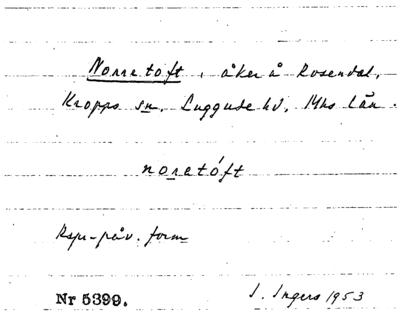 Norretoft, åker å Rosendal,
Kropps sn, Luggude hd, Mhs län.
noretóft
Rspr-påv. form
Nr 5399.
I. Ingers 1953